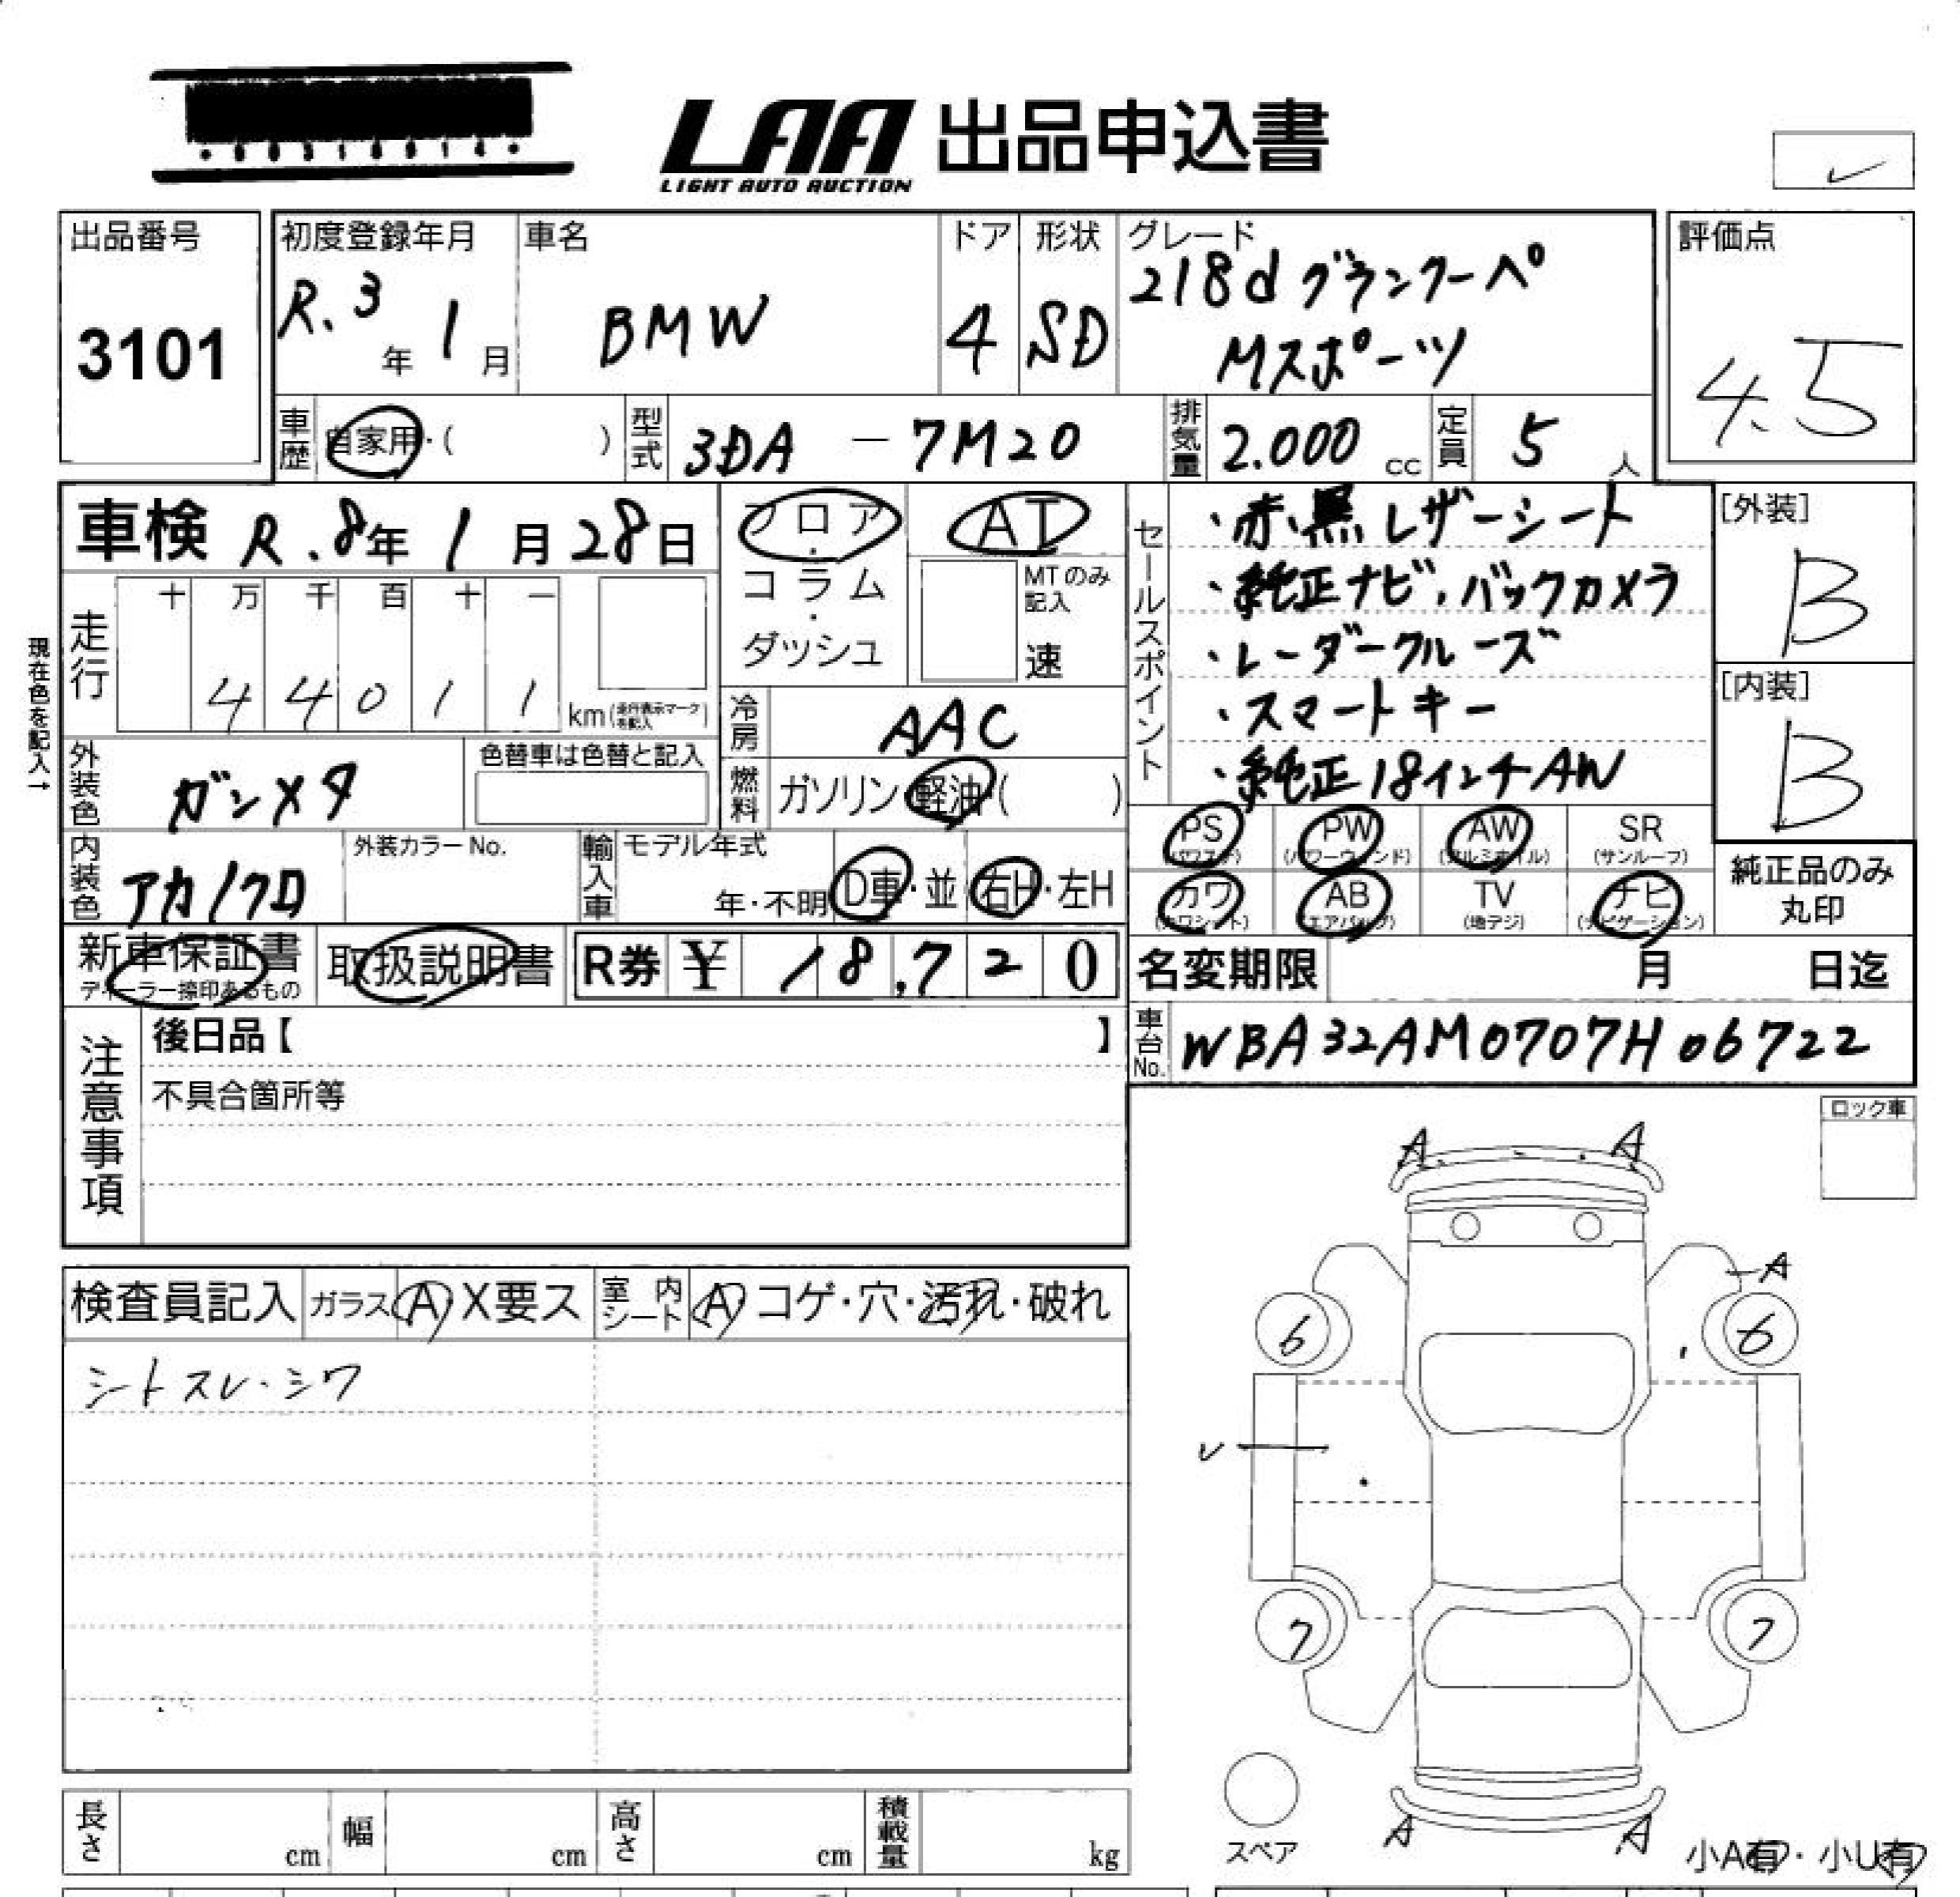 LAA 出品申込書
LIGHT AUTO AUCTION
出品番号
3101
初度登録年月
R.3年 1月
車名
BMW
ドア
4
形状
SD
グレード
218d グランクーペ
Mスポーツ
評価点
4.5
車歴
自家用・( )
型式
3DA - 7M20
排気量
2.000 cc
定員
5 人
車検 R.8年 1月28日
フロア・コラム・ダッシュ
AT
MTのみ記入
速
現在色を記入→
走行
十 万 千 百 十 一
4 4 0 1 1 km(走行表示マークを記入)
冷房
AAC
燃料
ガソリン・軽油( )
外装色
ガンメタ
色替車は色替と記入
内装色
アカ/クロ
外装カラーNo.
輸入車
モデル年式
年・不明
D車・並
右H・左H
セールスポイント
・赤、黒レザーシート
・純正ナビ、バックカメラ
・レーダークルーズ
・スマートキー
・純正18インチAW
[外装]
B
[内装]
B
PS (パワステ)
PW (パワーウィンド)
AW (アルミホイル)
SR (サンルーフ)
カワ (カワシート)
AB (エアバッグ)
TV (地デジ)
ナビ (ナビゲーション)
純正品のみ
丸印
新車保証書
ディーラー捺印あるもの
取扱説明書
R券 ¥ 18,720
名変期限 月 日迄
車台No.
WBA32AM0707H06722
注意事項
後日品【 】
不具合箇所等
ロック車
検査員記入
ガラス A X要ス
室内シート A コゲ・穴・汚れ・破れ
シートスレ・シワ
A A
A
6 6
7 7
スペア
A A
小A有・小U有
長さ cm
幅 cm
高さ cm
積載量 kg